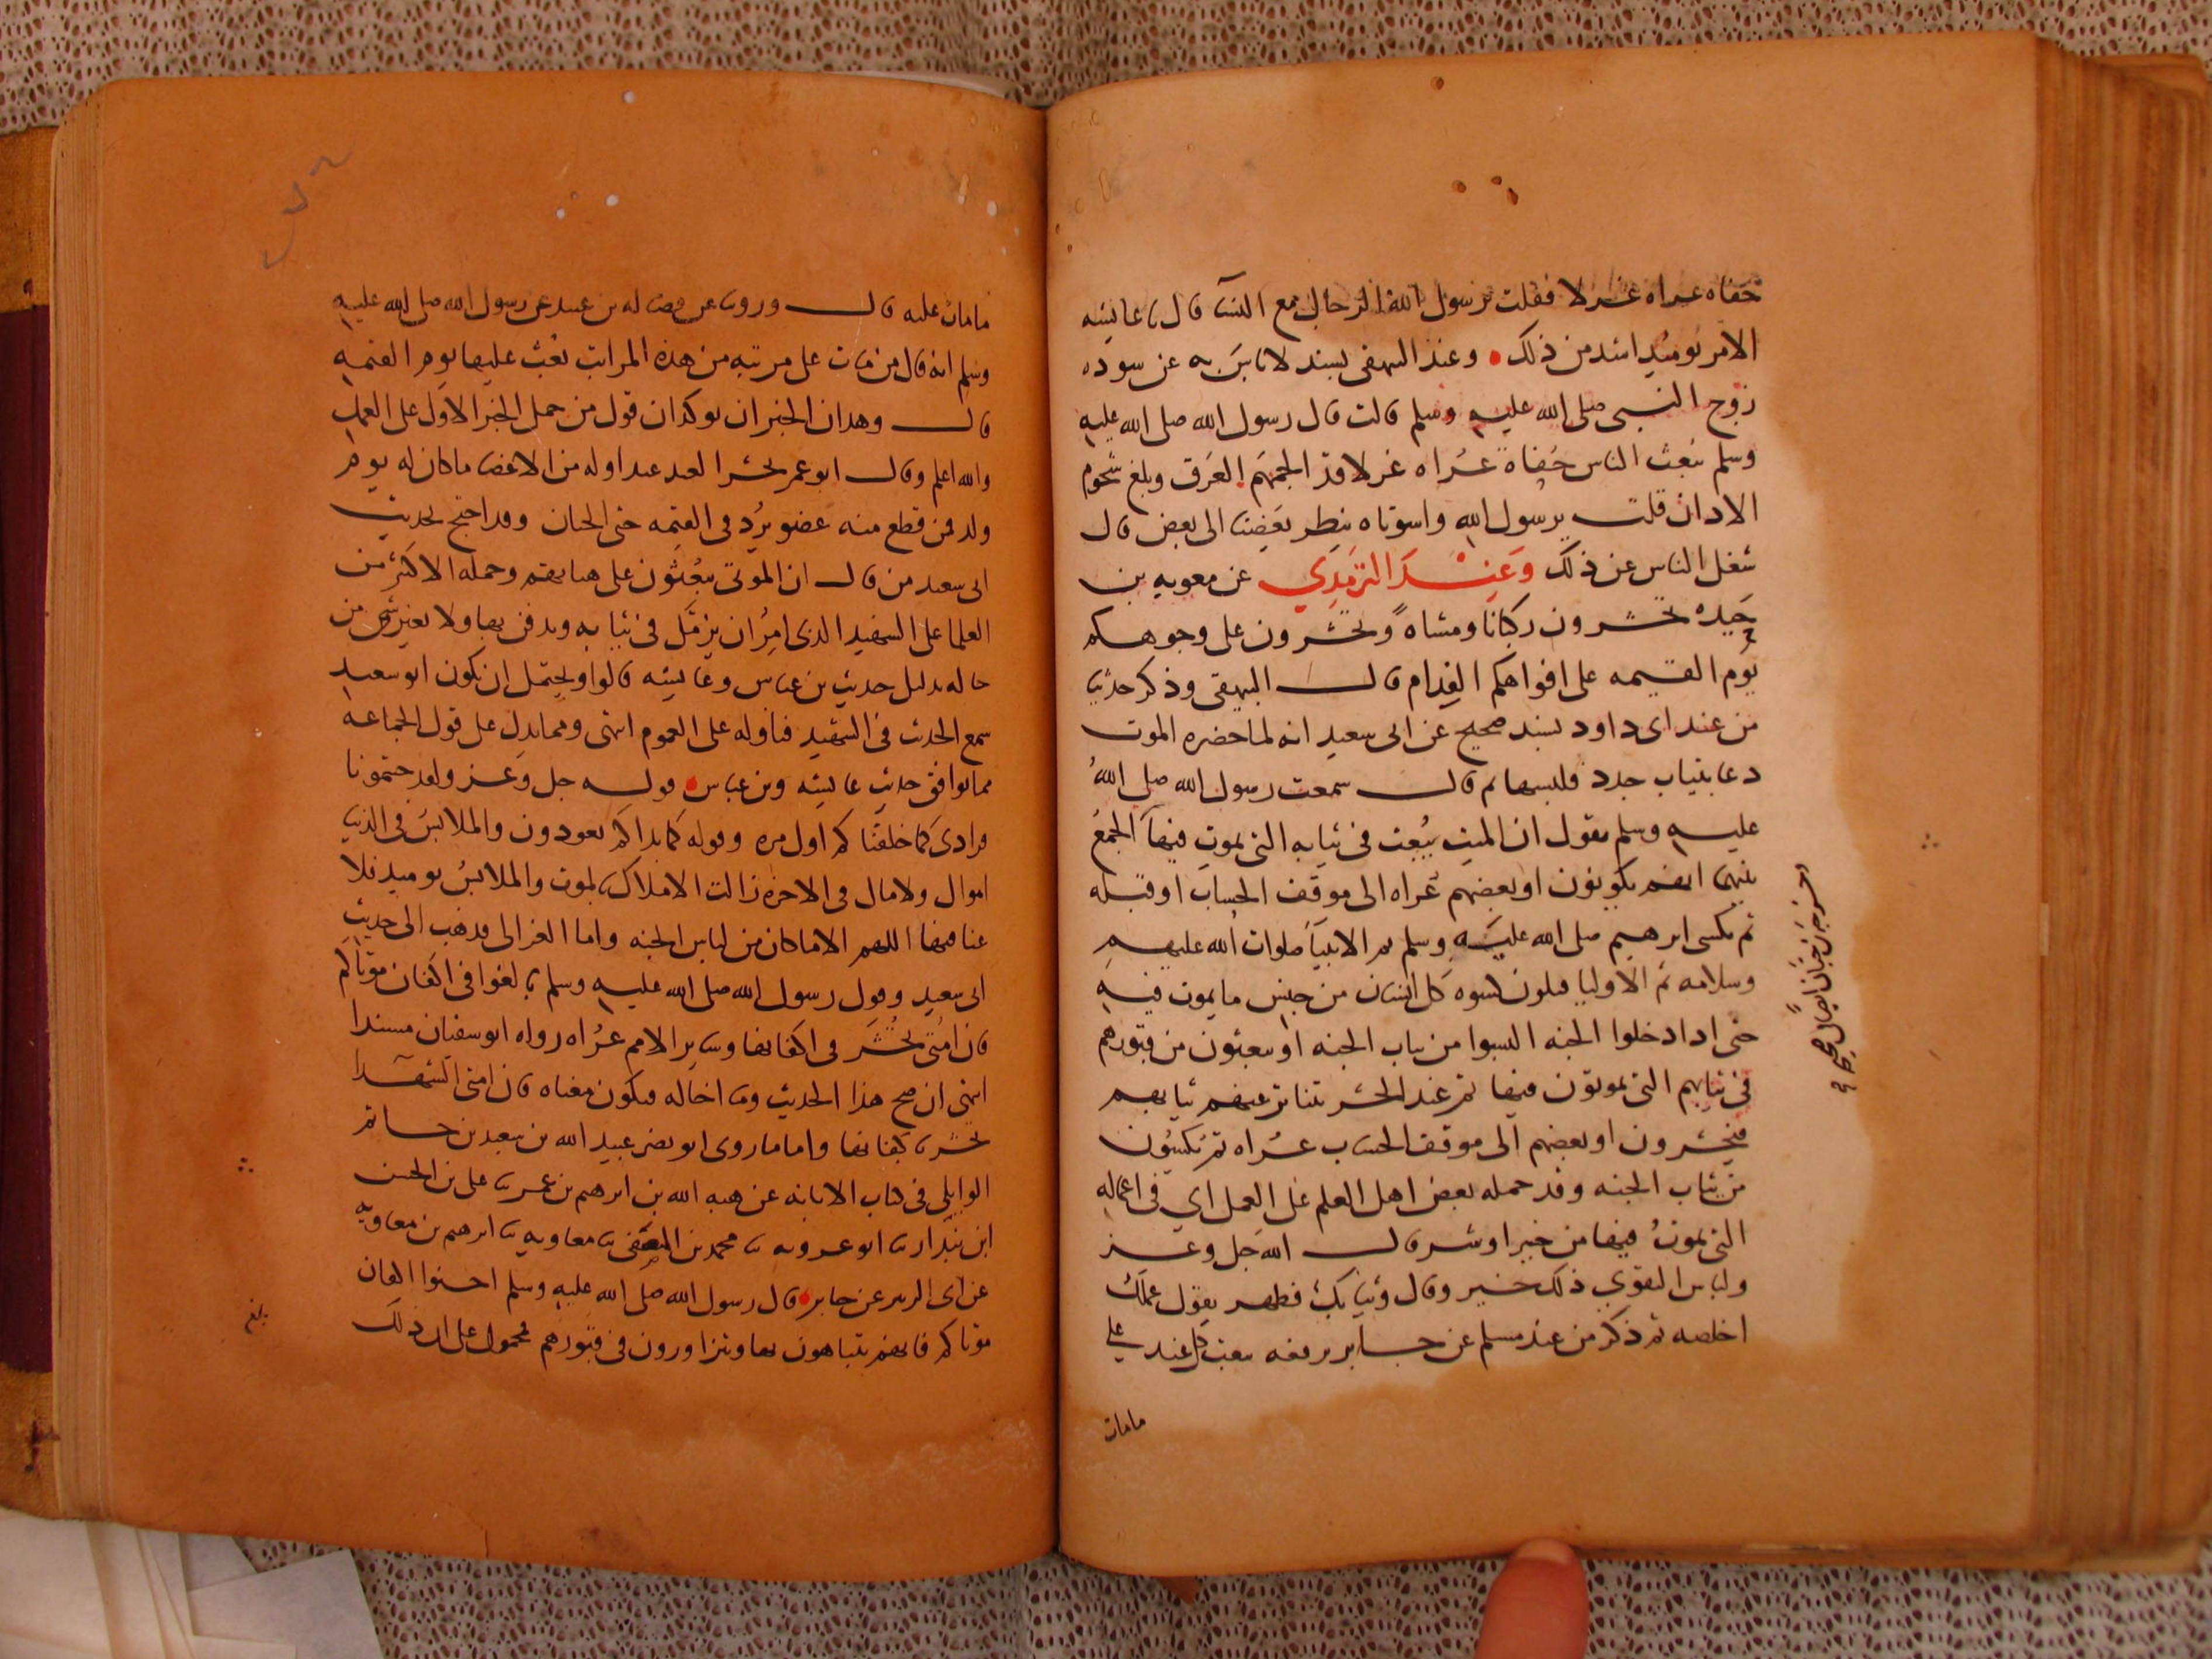 حفاه عراه غرلا فقلت يرسول الله الرجال مع النسا قال يا عايشه
الامر يوميد اشد من ذلك وعند البيهقى بسند لا باس به عن سوده
زوج النبى صلى الله عليه وسلم قالت قال رسول الله صلى الله عليه
وسلم يبعث الناس حفاة عراه غرلا قد الجمهم العرق وبلغ شحوم
الادان قلت يرسول الله واسوتاه ينظر بعضنا الى بعض قال
شغل الناس عن ذلك وعند الترمدي عن معويه بن
حيده تحشرون ركبانا ومشاة وتحشرون على وجوهكم
يوم القيمه على افواهكم الفدام قال البيهقى وذكر حديثا
من عند ابى داود بسند صحيح عن ابى سعيد انه لما حضره الموت
دعا بثياب جدد فلبسها ثم قال سمعت رسول الله صلى الله
عليه وسلم يقول ان الميت يبعث فى ثيابه التى يموت فيها الجمع
بينهما انهم يكونون او بعضهم عراه الى موقف الحساب او قبله
ثم يكسى ابرهيم صلى الله عليه وسلم ثم الانبيا صلوات الله عليهم
وسلامه ثم الاوليا فيكون كسوه كل انسان من جنس ما يموت فيه
حتى ادا دخلوا الجنه البسوا من ثياب الجنه او يبعثون من قبورهم
فى ثيابهم التى يموتون فيها ثم عند الحشر تتناثر عنهم ثيابهم
فيحشرون او بعضهم الى موقف الحساب عراه ثم يكسون
من ثياب الجنه وقد حمله بعض اهل العلم على العمل اي فى اعماله
التى يموت فيها من خير او شر قال الله جل وعز
ولباس التقوي ذلك خير وقال وثيابك فطهر يقول عملك
اخلصه ثم ذكر من عند مسلم عن جابر يرفعه يبعث كل عبد على
مامات
ابن حبان ايضا فى صحيحه
مامات عليه قال وروينا عن فضاله بن عبيد عن رسول الله صلى الله عليه
وسلم انه قال من مات على مرتبه من هذه المراتب بعث عليها يوم القيمه
قال وهدان الخبران يوكدان قول من حمل الخبر الاول على العمل
والله اعلم وقال ابو عمر يحشر العبد غدا وله من الاعضا ما كان له يوم
ولد فمن قطع منه عضو يرد فى القيمه حتى الختان وقد احتج بحديث
ابى سعيد من قال ان الموتى يبعثون على هياتهم وحمله الاكثر من
العلما على الشهيد الذى امر ان يزمل فى ثيابه ويدفن بها ولا يغير شى من
حاله بدليل حديث بن عباس وعايشه قالوا ويحتمل ان يكون ابو سعيد
سمع الحديث فى الشهيد فتاوله على العموم انتهى ومما يدل على قول الجماعه
مما يوافق حديث عايشه وبن عباس قوله جل وعز ولقد جيتمونا
فرادى كما خلقناكم اول مره وقوله كما بداكم تعودون والملابس فى الدنيا
اموال ولا مال فى الاخره زالت الاملاك بالموت والملابس يوميد فلا
غنا فيها اللهم الا ما كان من لباس الجنه واما الغزالى فدهب الى حديث
ابى سعيد وقول رسول الله صلى الله عليه وسلم بالغوا فى اكفان موتاكم
فان امتى تحشر فى اكفانها وساير الامم عراه رواه ابو سفيان مسندا
انتهى ان صح هذا الحديث وما اخاله فيكون معناه فان امتى الشهدا
تحشر باكفانها واما ما روى ابو نصر عبيد الله بن سعيد بن حاتم
الوايلى فى كتاب الابانه عن هبه الله بن ابرهيم بن عمر ثنا على بن الحسن
ابن بندار ثنا ابو عروبه ثنا محمد بن المصفى ثنا معاويه ثنا ابرهيم بن معاويه
عن ابى الزبير عن جابر قال رسول الله صلى الله عليه وسلم احسنوا اكفان
موتاكم فانهم يتباهون بها ويتزاورون فى قبورهم محمول على ان ذلك
بلغ